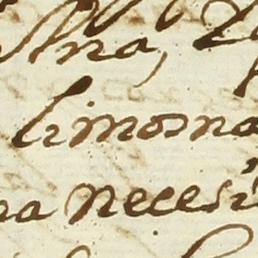 Ana,
limosna
na necesi